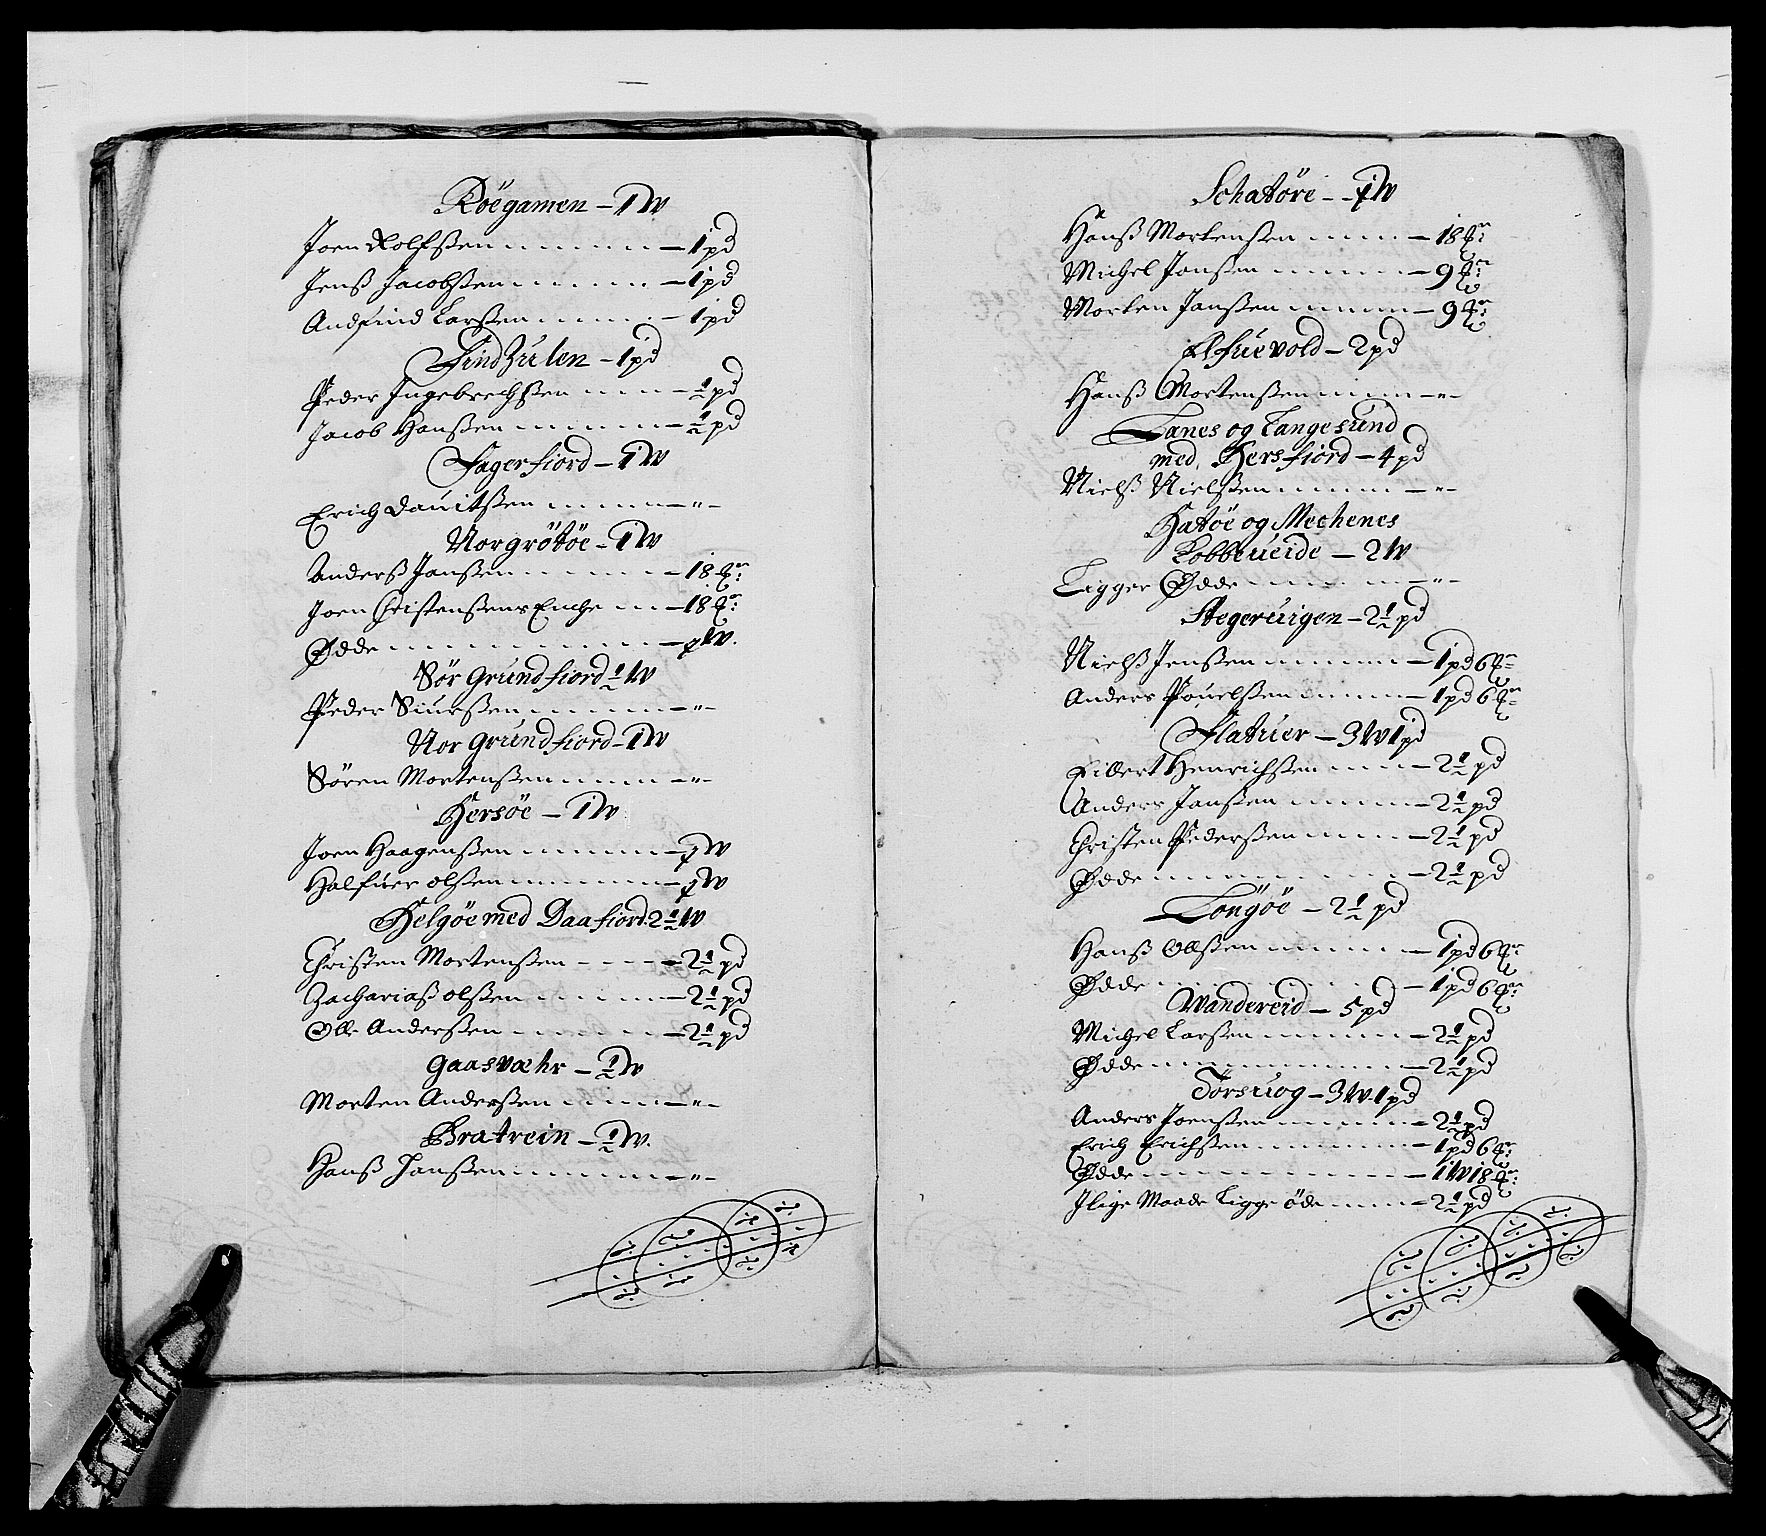 Röegamen – 1 W
Joen Rolfsen – 1 pd
Jenß Jacobßen – 1 pd
Andfind Larßen – 1 pd
Find Zulen – 1 pd
Peder Ingebrechtßen – ½ pd
Jacob Hanßen – ½ pd
Fagerfiord – 1 W
Erich Dauitßen – " –
Norgrötöe – 1 W
Anderß Janßen – 18
Joen Christenßens Enche – 18
Ødde – ½ W.
Sör Grundfiord ½ W
Peder Siurßen – " –
Nor Grundfiord – 1 W
Sören Mortenßen – " –
Hersöe – 1 W
Joen Haagenßen – ½ W
Halfuer olßen – ½ W
Helgöe med Daafiord 2½ W
Christen Mortenßen – 2½ pd
Zachariaß olßen – 2½ pd
Olle Anderßen – 2½ pd
Gaasvæhr – ½ W
Morten Anderßen – " –
Bratrein – ½ W.
Hanß Hanßen – " –
Schatöre – ½ W
Hanß Mortenßen – 18
Michel Janßen – 9
Morten Janßen – 9
Afuevold – 2 pd
Hanß Mortenßen – " –
Lanes og Langesund
med Hersfiord – 4 pd
Nielß Nielßen – " –
Hatöe og Mechenes
Kobbeueide – 2 W
Ligger Ødde – " –
Stegeruigen – 2½ pd
Nielß Jenßen – 1 pd 6
Anders Pouelßen – 1 pd 6
Flatuer – 3 W 1 pd
Eillert Henrichßen – 2½ pd
Anders Janßen – 2½ pd
Christen Pederßen – 2½ pd
Ødde – 2½ pd
Longöe – 2½ pd
Hanß Olßen – 1 pd 6
Ødde – 1 pd 6
Wandereid – 5 pd
Michel Larßen – 2½ pd
Ødde – 2½ pd
Torsuog – 3 W 1 pd
Anders Joenßen – 2½ pd
Erich Erichßen – 1 pd 6
Ødde – 1 W 18
Jlige Maade Ligge öde – 2½ pd